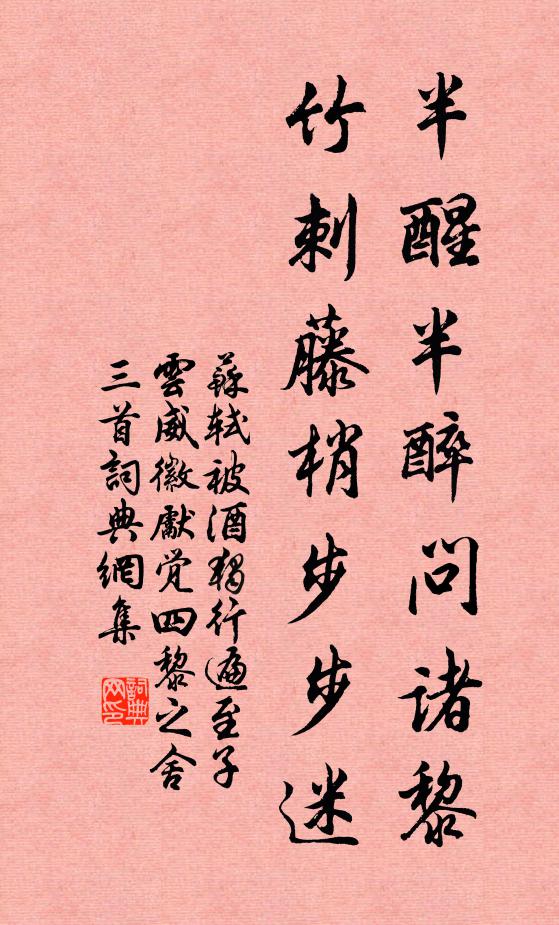 半醒半醉問諸黎
竹刺藤梢步步迷
蘇軾被酒獨行遍至子
雲威徽獻觉四黎之舍
三首詞典網集
詞典网印